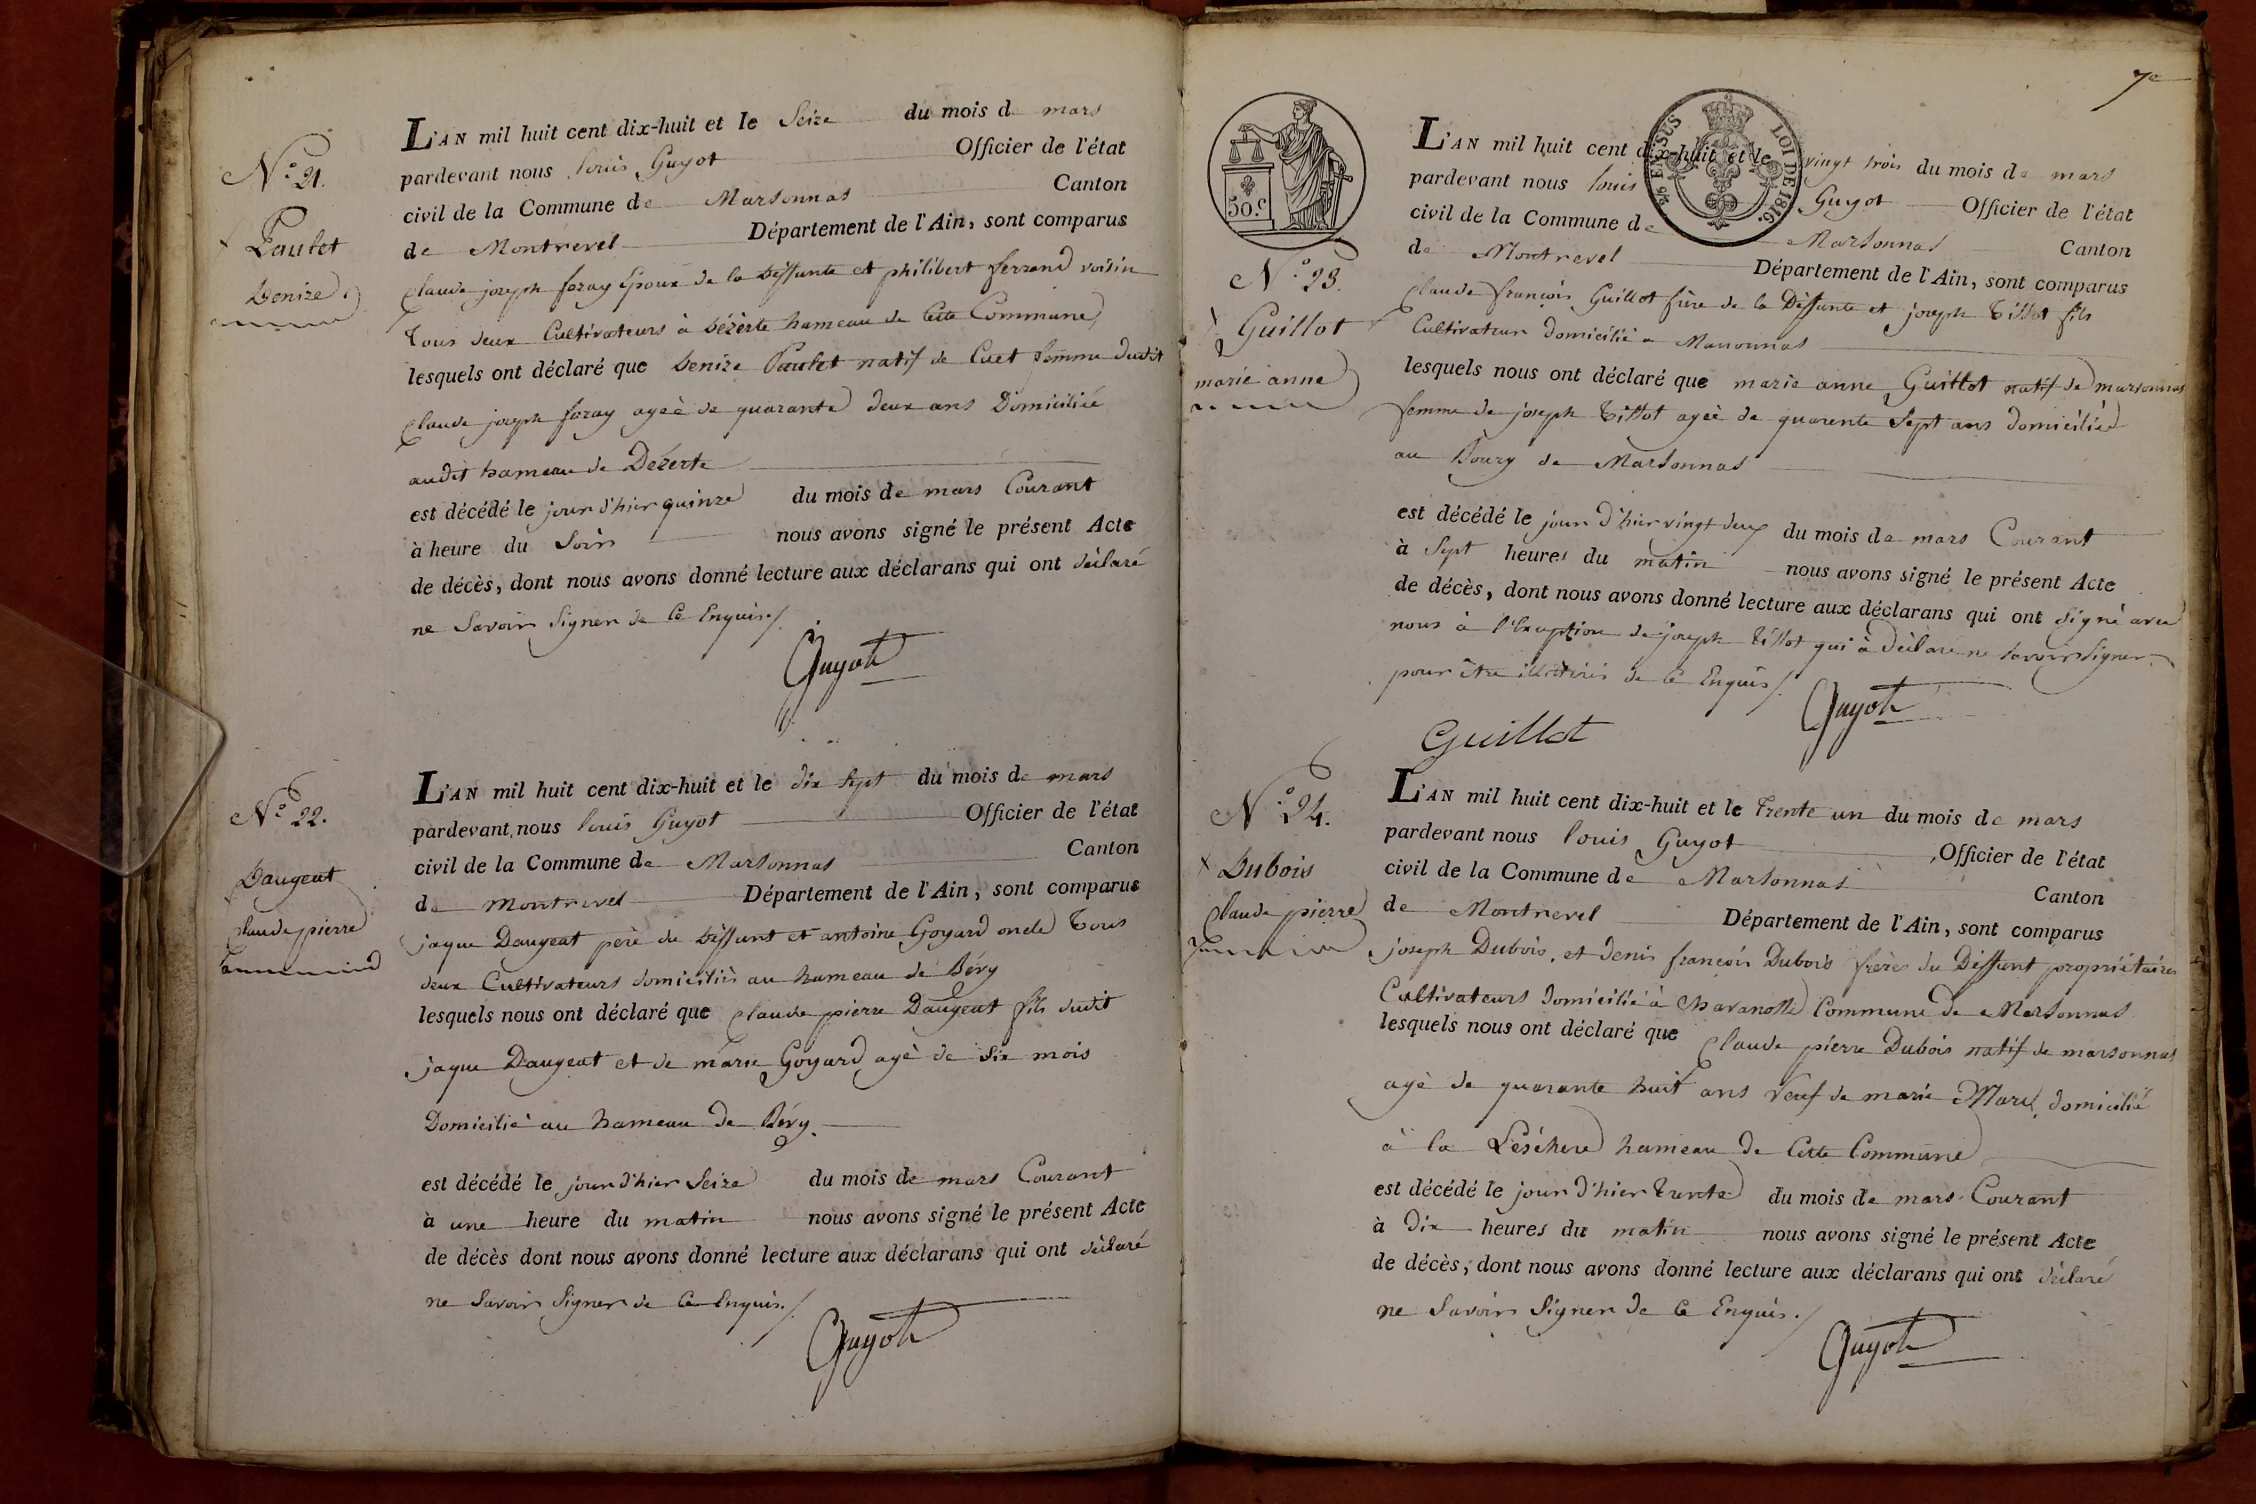 N.o 21.
Paulet
Denize
L'AN mil huit cent dix-huit et le Seize du mois de mars
pardevant nous louis Guyot Officier de l'état
civil de la Commune de Marsonnas Canton
de Montrevel Département de l'Ain, sont comparus
Claude joseph foray Epoux de la deffunte et philibert ferrand voisin
tous deux Cultivateurs à dézèrte hameau de Cette Commune
lesquels ont déclaré que denize Paulet natif de Cuet femme dudit
Claude joseph foray ageè de quarante deux ans Domiciliée
audit hameau de Dézerte
est décédé le jour d'hier quinze du mois de mars Courant
à heure du Soir nous avons signé le présent Acte
de décès, dont nous avons donné lecture aux déclarans qui ont déclaré
ne Savoir Signer de Ce Enquis./.
Guyot
N.o 22.
Daugeat
Claude pierre
L'AN mil huit cent dix-huit et le dix Sept du mois de mars
pardevant nous louis Guyot Officier de l'état
civil de la Commune de Marsonnas Canton
de montrevel Département de l'Ain, sont comparus
jaque Daugeat père du deffunt et antoine Goyard oncle tous
deux Cultivateurs domiciliés au hameau de Bévy
lesquels nous ont déclaré que Claude pierre Daugeat fils dudit
jaque Daugeat et de marie Goyard agé de six mois
Domicilié au hameau de Bévy.
est décédé le jour d'hier Seize du mois de mars Courant
à une heure du matin nous avons signé le présent Acte
de décès dont nous avons donné lecture aux déclarans qui ont déclaré
ne Savoir Signer de Ce Enquis./.
Guyot
7e
50.c
26 EN SUS
LOI DE 1816.
N.o 23.
Guillot
marie anne
L'AN mil huit cent dix-huit et le vingt trois du mois de mars
pardevant nous louis Guyot Officier de l'état
civil de la Commune de Marsonnas Canton
de Montrevel Département de l'Ain, sont comparus
Claude françois Guillot frère de la Deffunte et joseph tillot fils
Cultivateur domicilié a Marsonnas
lesquels nous ont déclaré que marie anne Guillot natif de marsonnas
femme de joseph tillot ageè de quarente Sept ans domiciliée
au Bourg de Marsonnas
est décédé le jour d'hier vingt deux du mois de mars Courant
à Sept heures du matin nous avons signé le présent Acte
de décès, dont nous avons donné lecture aux déclarans qui ont signé avec
nous à l'Exeption de joseph tillot qui à déclaré ne Savoir Signer
pour être illitéré de Ce Enquis/.
Guyot
Guillot
N.o 24.
Dubois
Claude pierre
L'AN mil huit cent dix-huit et le trente un du mois de mars
pardevant nous louis Guyot Officier de l'état
civil de la Commune de Marsonnas Canton
de Montrevel Département de l'Ain, sont comparus
joseph Dubois, et denis françois Dubois frères du Deffunt propriétaires
Cultivateurs domicilié à Chavanosse Commune de Marsonnas
lesquels nous ont déclaré que Claude pierre Dubois natif de marsonnas
agé de quarante huit ans Veuf de marie Morel domicilié
à la Léchere hameau de Cette Commune
est décédé le jour d'hier trente du mois de mars Courant
à Dix heures du matin nous avons signé le présent Acte
de décès, dont nous avons donné lecture aux déclarans qui ont déclaré
ne Savoir Signer de Ce Enquis./
Guyot